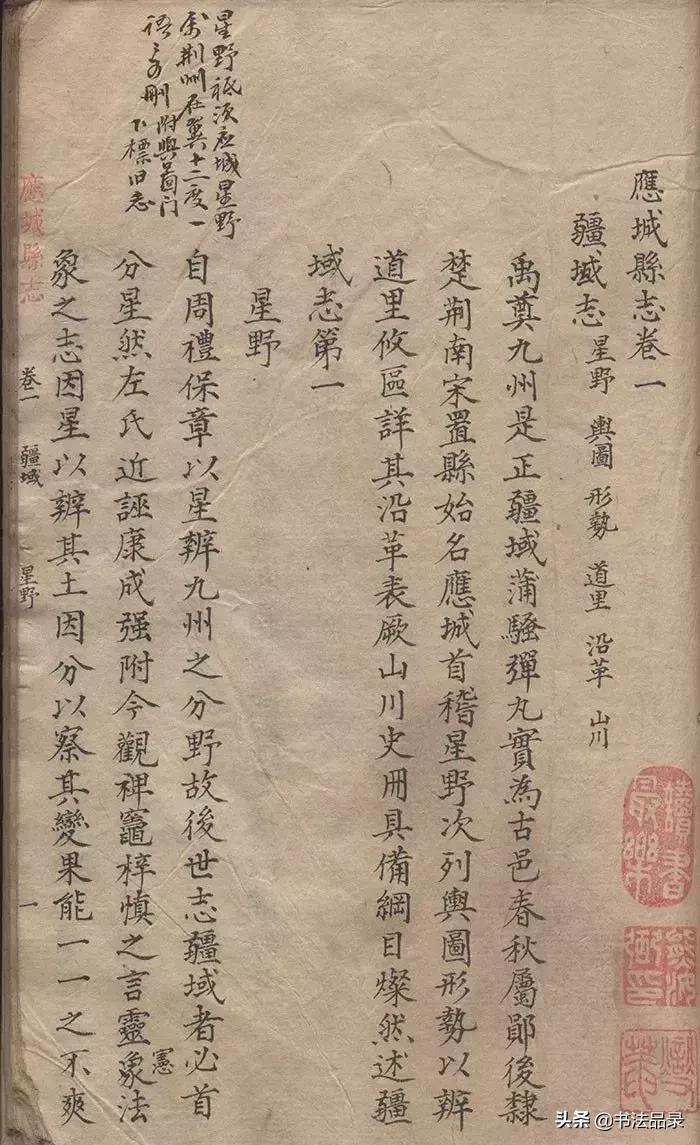 應城縣志卷一
疆域志 星野 輿圖 形勢 道里 沿革 山川
禹奠九州是正疆域蒲騷彈丸實為古邑春秋屬鄖後隸
楚荆南宋置縣始名應城首稽星野次列輿圖形勢以辨
道里攸區詳其沿革表厥山川史册具備綱目燦然述疆
域志第一
星野
自周禮保章以星辨九州之分野故後世志疆域者必首
分星然左氏近誣康成强附今觀裨竈梓慎之言靈象法
憲
象之志因星以辨其土因分以察其變果能一一之不爽
星野祗須应城星野
属荆州在翼十二度一
語 刪附輿圖门
下標旧志
應城縣志
卷一 疆域 星野 一
讀書最樂
头条 @书法品录